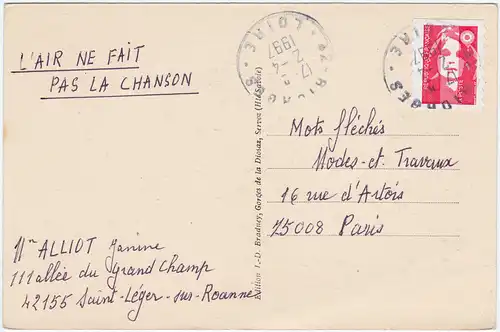 L'AIR NE FAIT
PAS LA CHANSON
Mots fléchés
Modes et Travaux
16 rue d'Artois
75008 Paris
Mme ALLIOT Janine
111 allée du Grand Champ
42155 Saint-Léger-sur-Roanne
Edition J.-D. Bradney, Gorges de la Diosaz, Servoz (Hte-Savoie)
42-RIORGES
17-2
1997
LOIRE